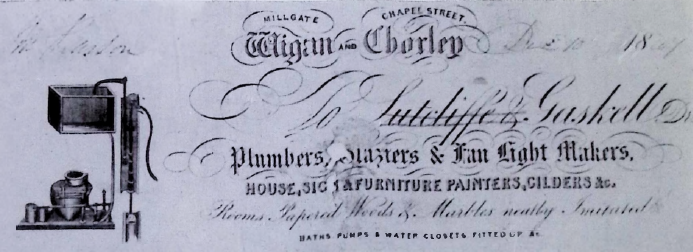 MILLGATE CHAPEL STREET.
Wigan AND Chorley
Dec 10 18
To Sutcliffe & Gaskell Dr
Plumbers, Glaziers & Fan Light Makers,
HOUSE, SIGN & FURNITURE PAINTERS, GILDERS &c.
Rooms Papered Woods & Marbles neatly Imitated
BATHS PUMPS & WATER CLOSETS FITTED UP &c.